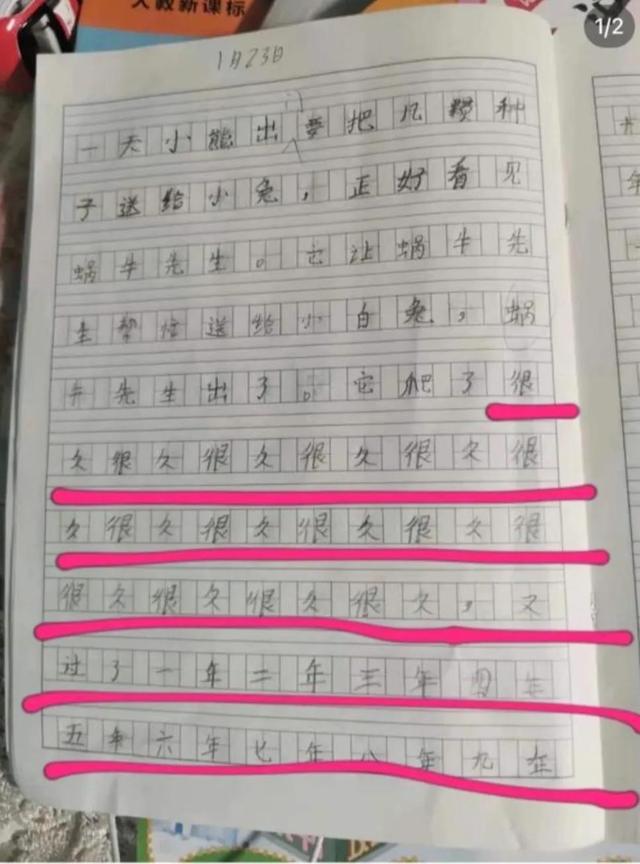 人教新课标
1/2
1月23日
一天小熊出要把几颗种
子送给小兔，正好看见
蜗牛先生。它让蜗牛先
生帮忙送给小白兔，蜗
牛先生出了。它爬了很
久很久很久很久很久很
久很久很久很久很久很
很久很久很久很久，又
过了一年二年三年四年
五年六年七年八年九年